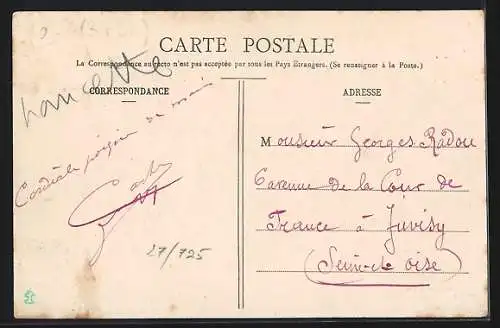 CARTE POSTALE
La Correspondance au recto n'est pas acceptée par tous les Pays Étrangers. (Se renseigner à la Poste.)
CORRESPONDANCE
Cordiale poignée de main
27/725
ADRESSE
Monsieur Georges Radou
6 avenue de la Cour de
France à Juvisy
(Seine-et-Oise)